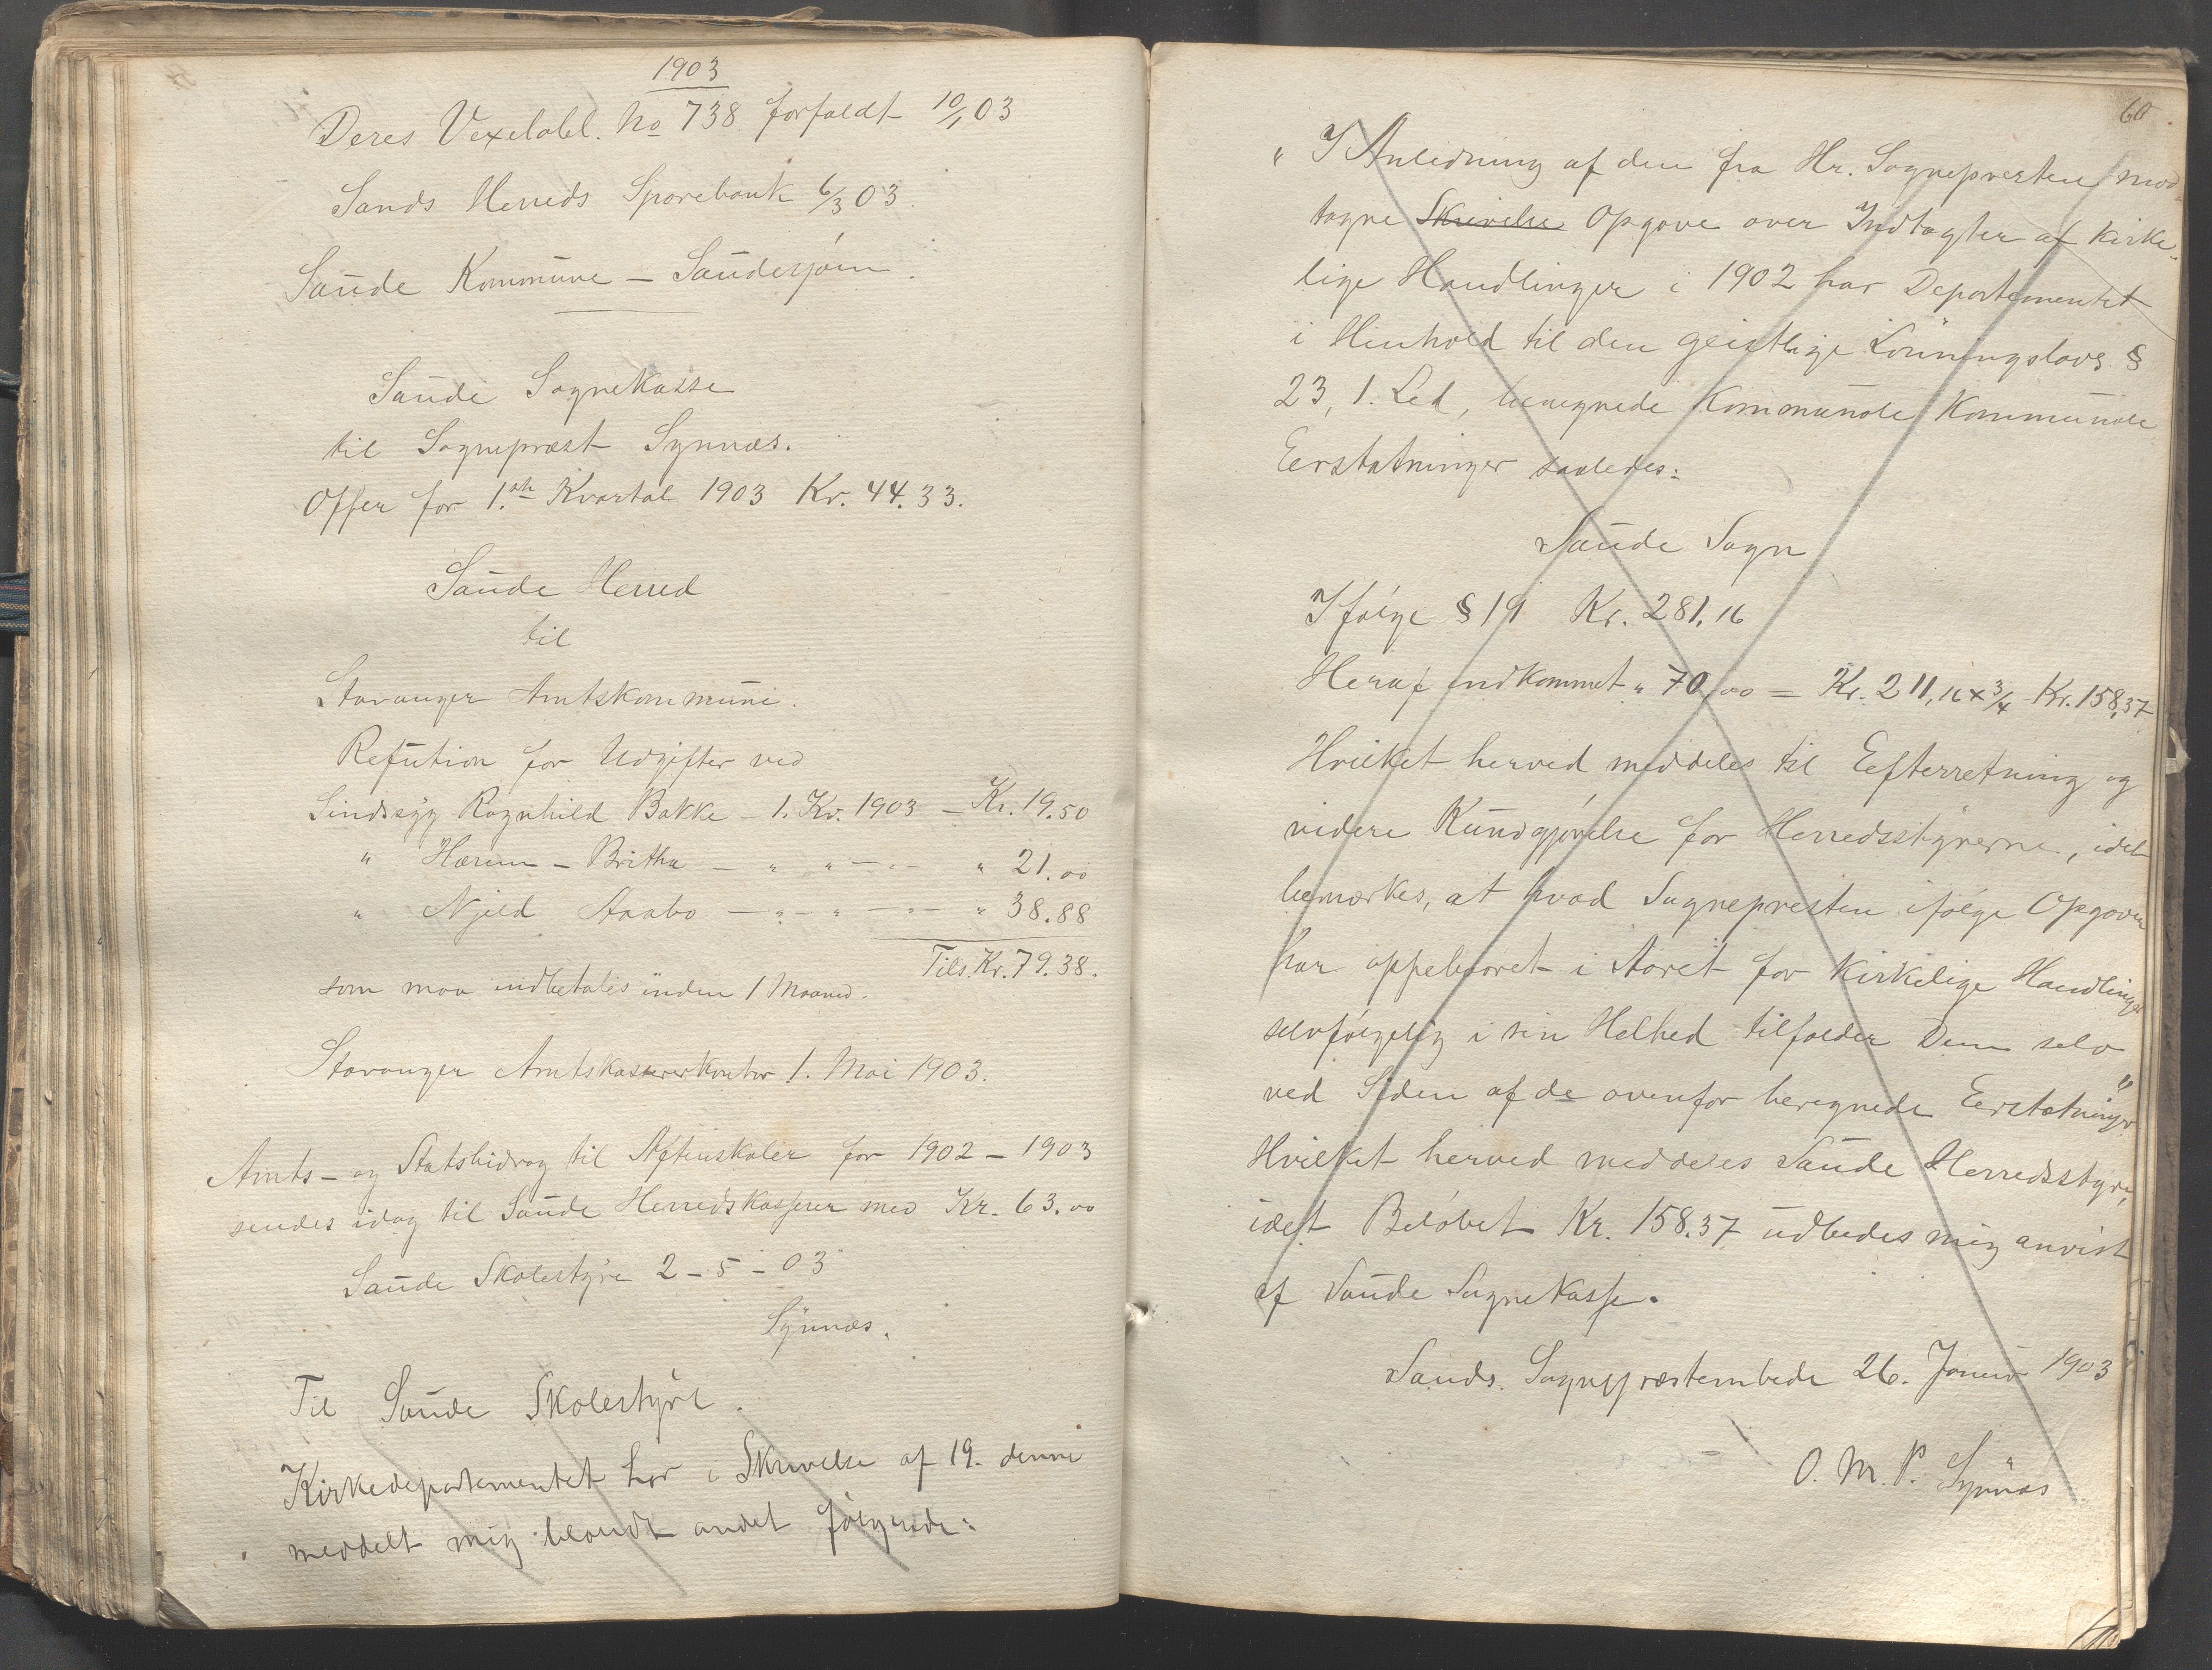 1903
Deres Vexelobl. No 738 forfaldt 10/1 03
Sands Herreds Sparebank 6/3 03.
Saude Kommune – Saudesjøen.
Saude Sognekasse
til Sogneprest Synnæs.
Offer for 1.ste Kvartal 1903 Kr. 44.33.
Saude Herred
til
Stavanger Amtskommune.
Refution for Udgifter ved
Sindssyg Ragnhild Bakke – 1. Kv. 1903 – Kr. 19.50
" – Britha – " " – " – " 21.00
" Njeld Aaabo – " – " – " – " 38.88
Tils. Kr. 79.38.
som maa indbetales inden 1 Maaned.
Stavanger Amtskassererkontor 1. Mai 1903.
Amts- og Statsbidrag til Aftenskoler for 1902 – 1903
sendes idag til Saude Herredskasserer med Kr. 63.00
Saude Skolestyre 2 – 5 – 03
Synnæs.
Til Saude Skolestyre.
Kirkedepartementet har i Skrivelse af 19. denne
meddelt mig blandt andet følgende:
60.
" I Anledning af den fra Hr. Sognepresten mod
tagne Skrivelse Opgave over Indtægter af kirke-
lige Handlinger i 1902 har Departementet
i Henhold til den geistlige Lønningslovs §
23, 1. Led, beregnede Kommunale Kommunale
Erstatninger saaledes:
Saude Sogn
Ifølge § 19 Kr. 281.16
Heraf indkommet " 70.00 = Kr. 211,16 x 3/4 – Kr. 158,37
Hvilket herved meddeles til Efterretning og
videre Kundgjørelse for Herredsstyrerne, idet
bemærkes, at hvad Sognepresten ifølge Opgaven
har oppebaaret i Aaret for kirkelige Handlinger
selvfølgelig i sin Helhed tilfalder Dem selv
ved Siden af de ovenfor beregnede Erstatninger"
Hvilket herved meddeles Saude Herredsstyre,
idet Beløbet Kr. 158.37 udbedes mig anvist
af Saude Sognekasse.
Sands Sogneprestembede 26. Januar 1903
O. M. P. Synnæs